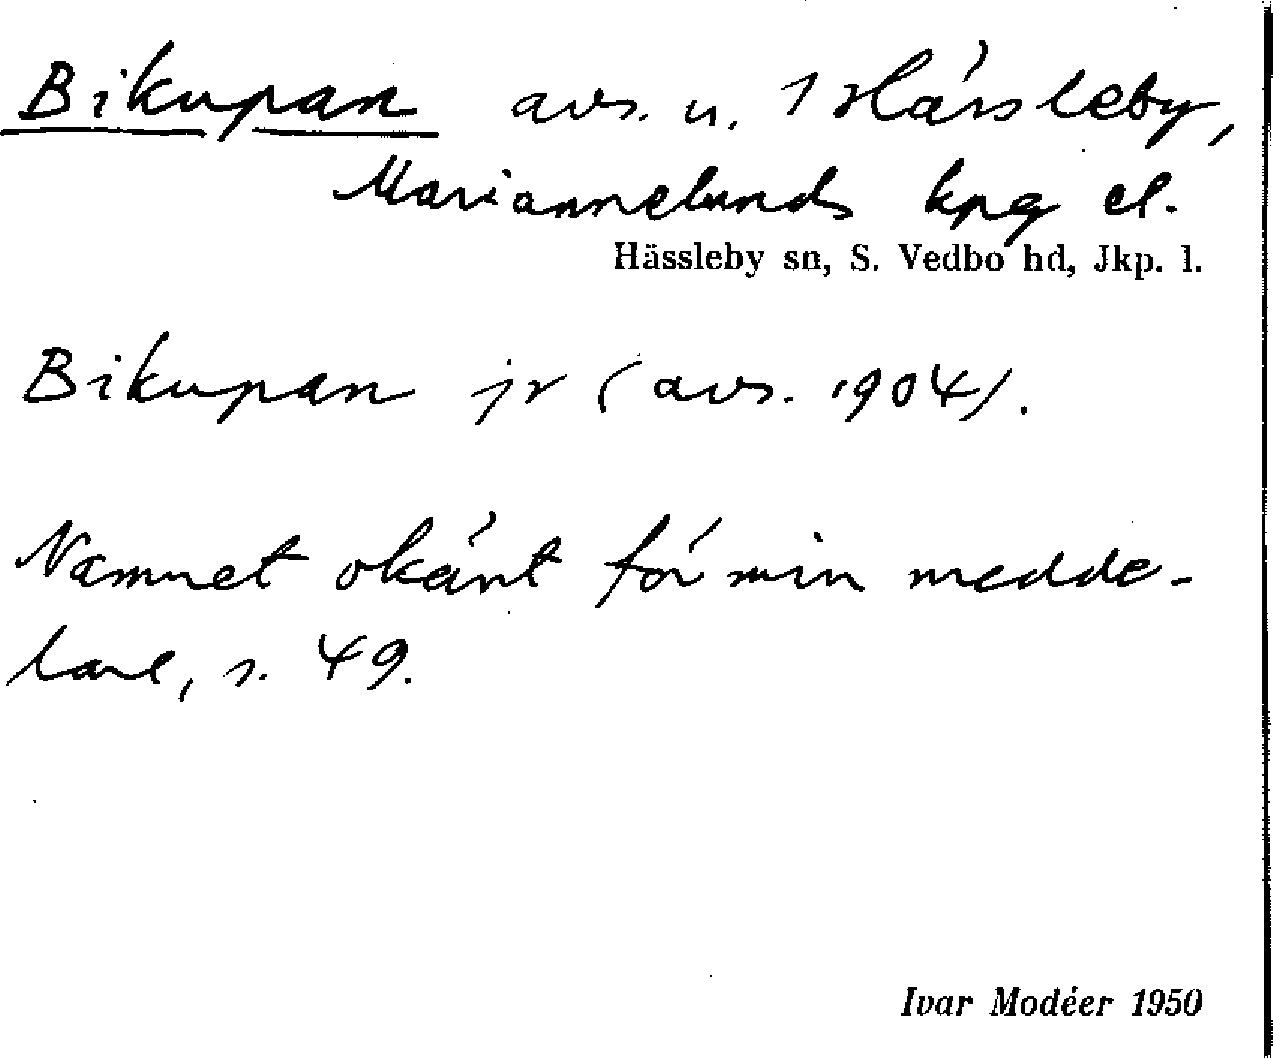 Bikupan avs. u. 1 Hässleby,
Mariannelunds kpg el.
Hässleby sn, S. Vedbo hd, Jkp. l.
Bikupan jr (avs. 1904).
Namnet okänt för min medde-
lare, s. 49.
Ivar Modéer 1950